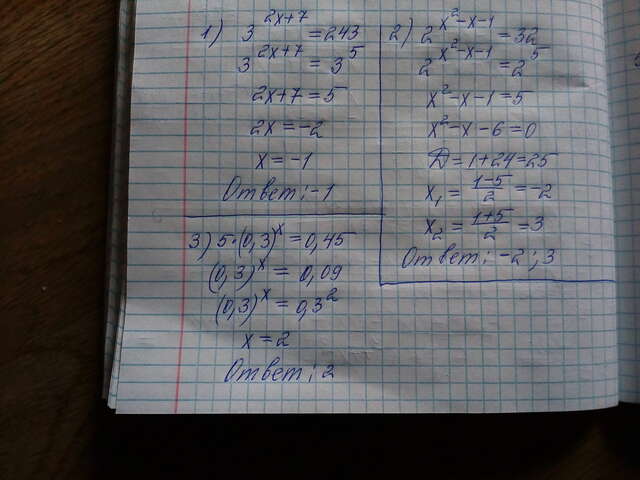 1) 3^(2x+7) = 243
3^(2x+7) = 3^5
2x+7=5
2x=-2
x=-1
Ответ: -1
2) 2^(x²-x-1) = 32
2^(x²-x-1) = 2^5
x²-x-1=5
x²-x-6=0
D=1+24=25
x₁ = (1-5)/2 = -2
x₂ = (1+5)/2 = 3
Ответ: -2; 3
3) 5·(0,3)^x = 0,45
(0,3)^x = 0,09
(0,3)^x = 0,3²
x=2
Ответ: 2